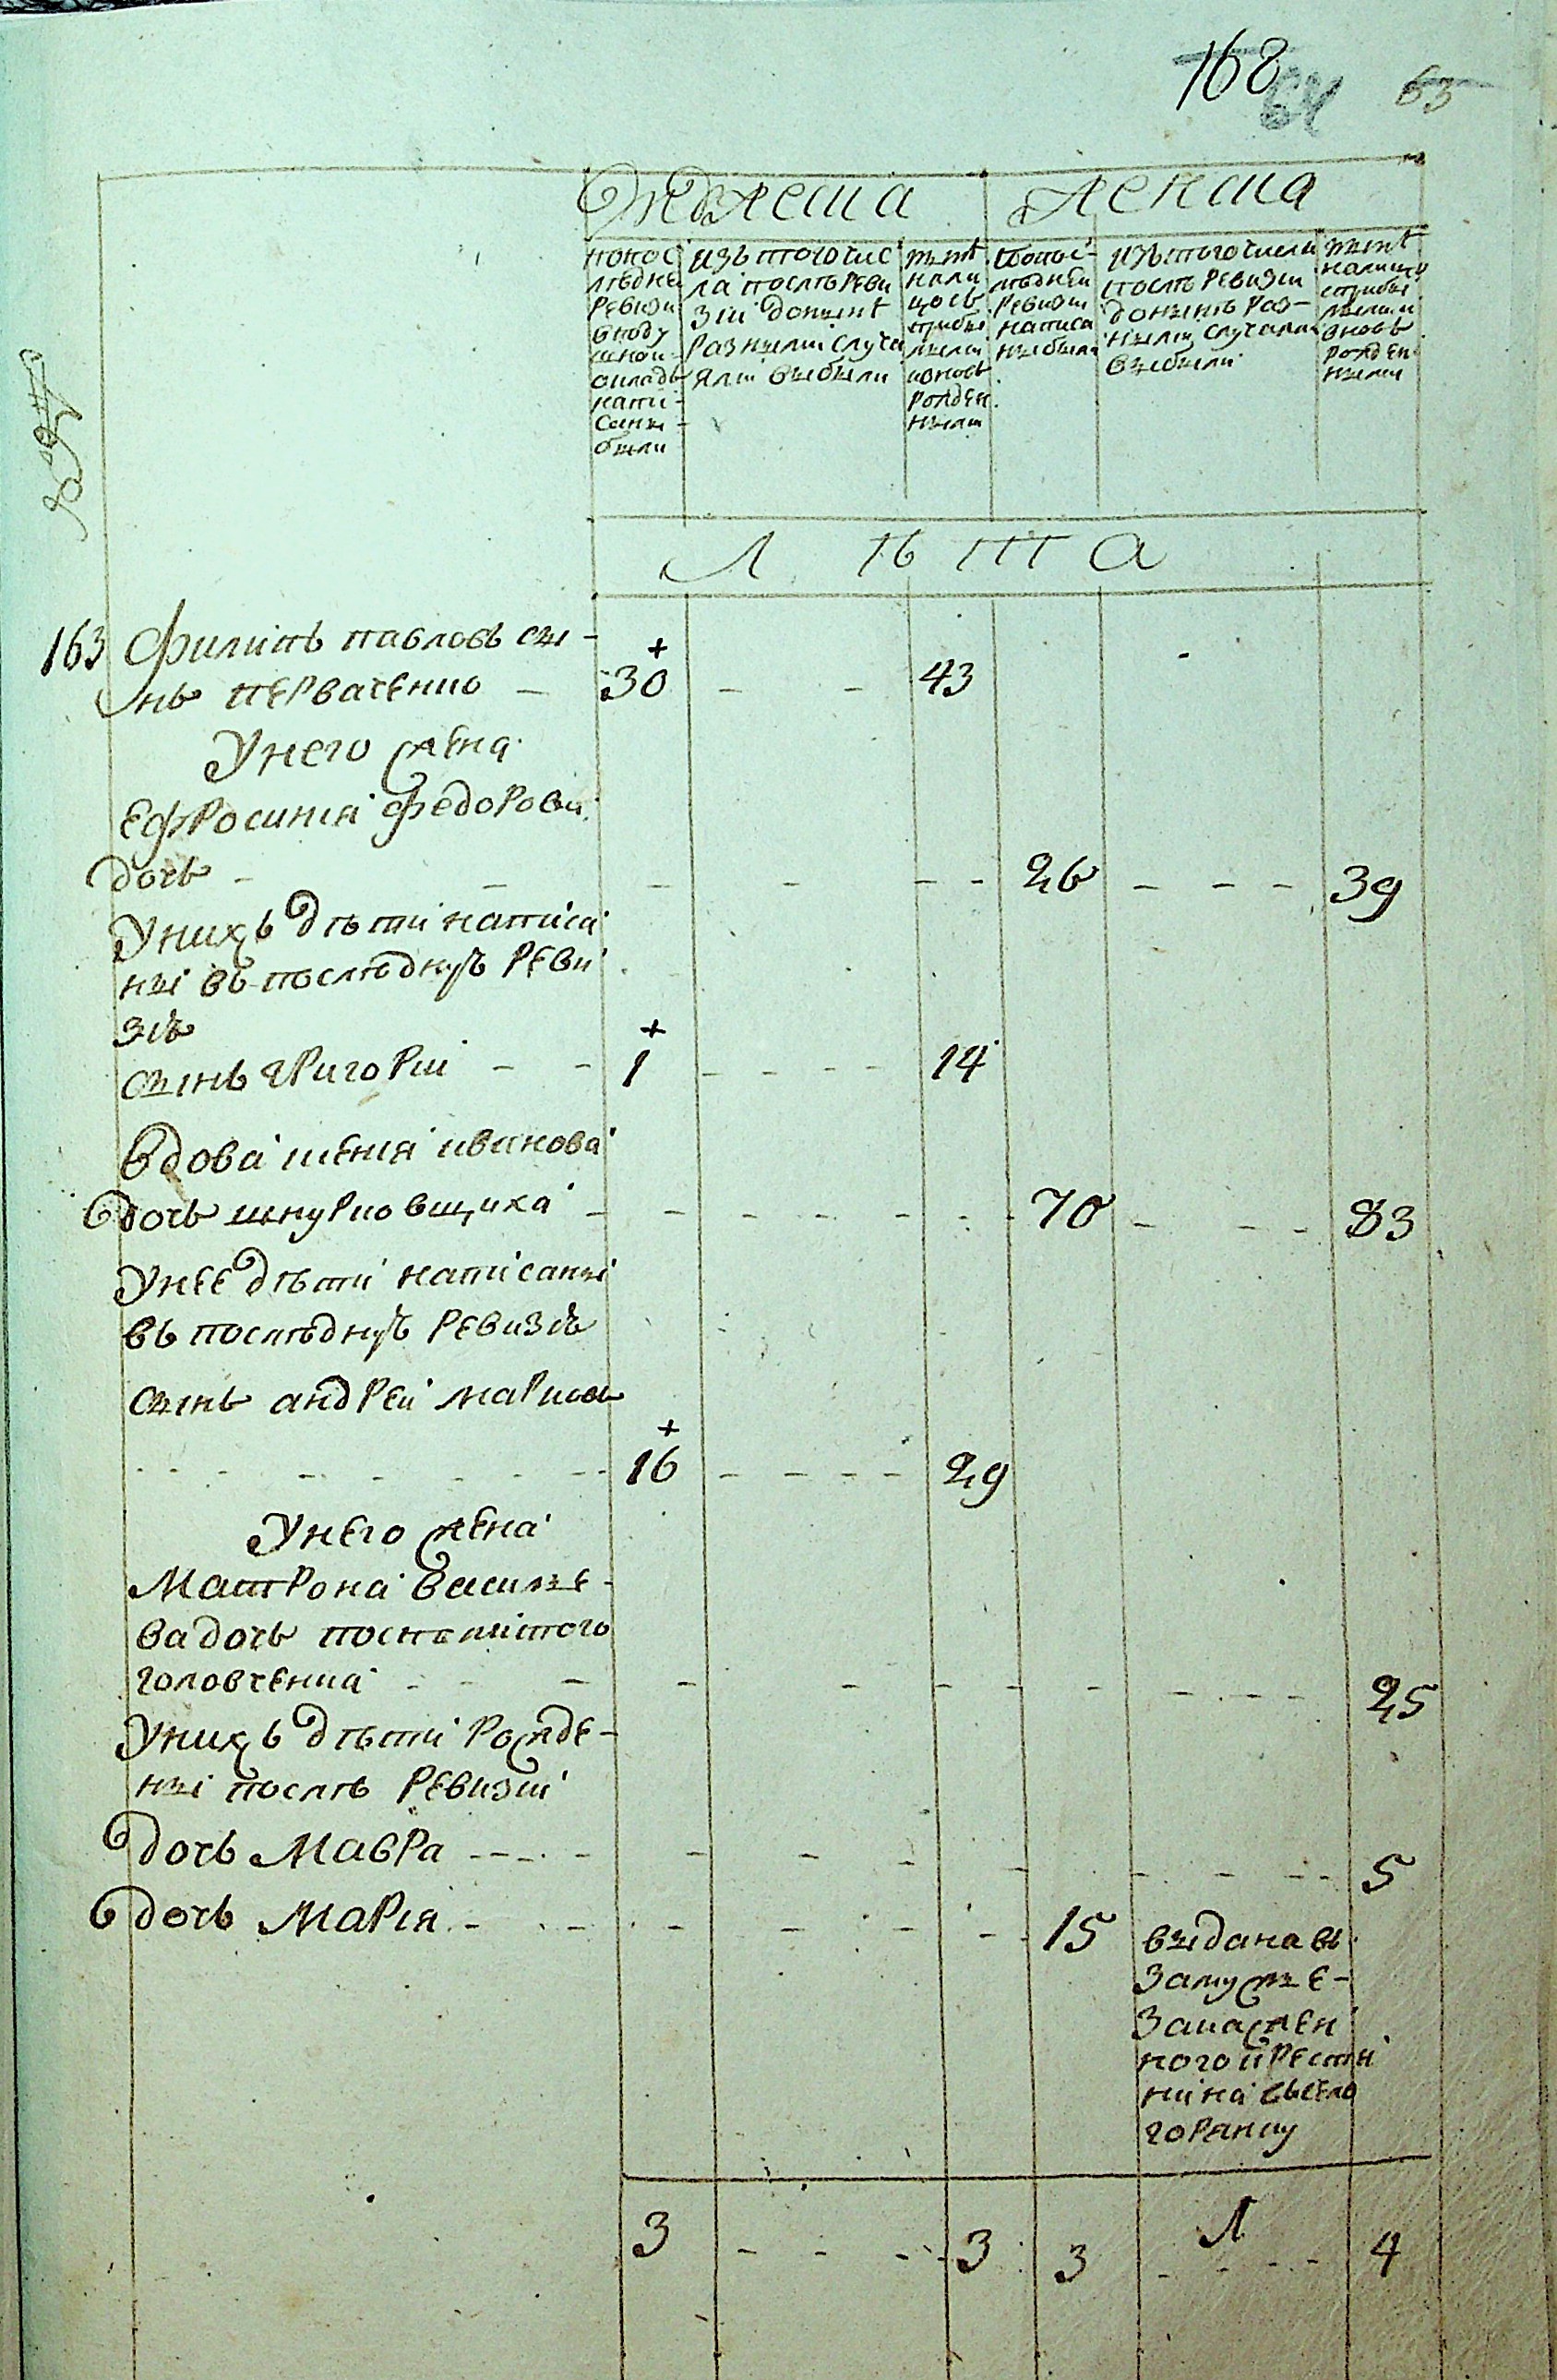 168 64 63
Мужеска женска
по пос
лѣдне
ревизи
в поду
шной
окладъ
напи-
саны
были
изъ того чис
ла послѣ реви
зіи до нынѣ
разными случа
ями выбыли
нынѣ
нали
цо съ
прибы
лыми
и вновь
рожден
ными
по пос-
лѣдней
ревизіи
написа
ны были
изъ того числа
послѣ ревизіи
до нынѣ раз-
ными случаями
выбыли
нынѣ
налицо
с прибы
лыми и
вновь
рожден
ными
лѣта
163 Филипъ павловъ сы-
нъ перваченко - 30 - - 43
У него жена
ефросинія федорова
дочь - - - - 26 - - - 39
У нихъ дѣти написа
ны въ послѣдную реви
зію
сынъ григорій - - 1 - - - - 14
вдова ксенія иванова
дочь шнурковщика - - - - 70 - - - 83
У нее дѣти написаны
въ послѣдную ревизію
сынъ андрей марковъ
- - - - - - 16 - - - - 29
У него жена
Матрона василье-
ва дочь посполитого
головченка - - - - - - - 25
У нихъ дѣти рожде-
ны послѣ ревизіи
дочь Мавра - - - - - - - 5
дочь Марія - - - - - 15 выдана въ
замуже-
за казен
ного крестья
нина въ село
горянку
3 - - - 3 3 - 1 - - 4